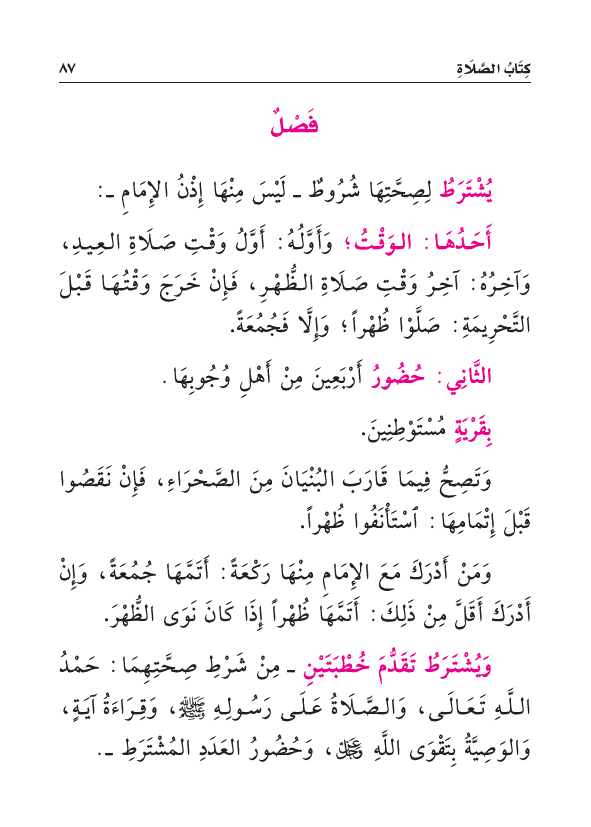 كِتَابُ الصَّلَاةِ ٨٧
فَصْلٌ
يُشْتَرَطُ لِصِحَّتِهَا شُرُوطٌ ـ لَيْسَ مِنْهَا إِذْنُ الإِمَامِ ـ:
أَحَدُهَا: الوَقْتُ؛ وَأَوَّلُهُ: أَوَّلُ وَقْتِ صَلَاةِ العِيدِ،
وَآخِرُهُ: آخِرُ وَقْتِ صَلَاةِ الظُّهْرِ، فَإِنْ خَرَجَ وَقْتُهَا قَبْلَ
التَّحْرِيمَةِ: صَلَّوْا ظُهْراً؛ وَإِلَّا فَجُمُعَةً.
الثَّانِي: حُضُورُ أَرْبَعِينَ مِنْ أَهْلِ وُجُوبِهَا.
بِقَرْيَةٍ مُسْتَوْطِنِينَ.
وَتَصِحُّ فِيمَا قَارَبَ البُنْيَانَ مِنَ الصَّحْرَاءِ، فَإِنْ نَقَصُوا
قَبْلَ إِتْمَامِهَا: ٱسْتَأْنَفُوا ظُهْراً.
وَمَنْ أَدْرَكَ مَعَ الإِمَامِ مِنْهَا رَكْعَةً: أَتَمَّهَا جُمُعَةً، وَإِنْ
أَدْرَكَ أَقَلَّ مِنْ ذَلِكَ: أَتَمَّهَا ظُهْراً إِذَا كَانَ نَوَى الظُّهْرَ.
وَيُشْتَرَطُ تَقَدُّمَ خُطْبَتَيْنِ ـ مِنْ شَرْطِ صِحَّتِهِمَا: حَمْدُ
اللَّهِ تَعَالَى، وَالصَّلَاةُ عَلَى رَسُولِهِ ﷺ، وَقِرَاءَةُ آيَةٍ،
وَالوَصِيَّةُ بِتَقْوَى اللَّهِ ﷿، وَحُضُورُ العَدَدِ المُشْتَرَطِ ـ.